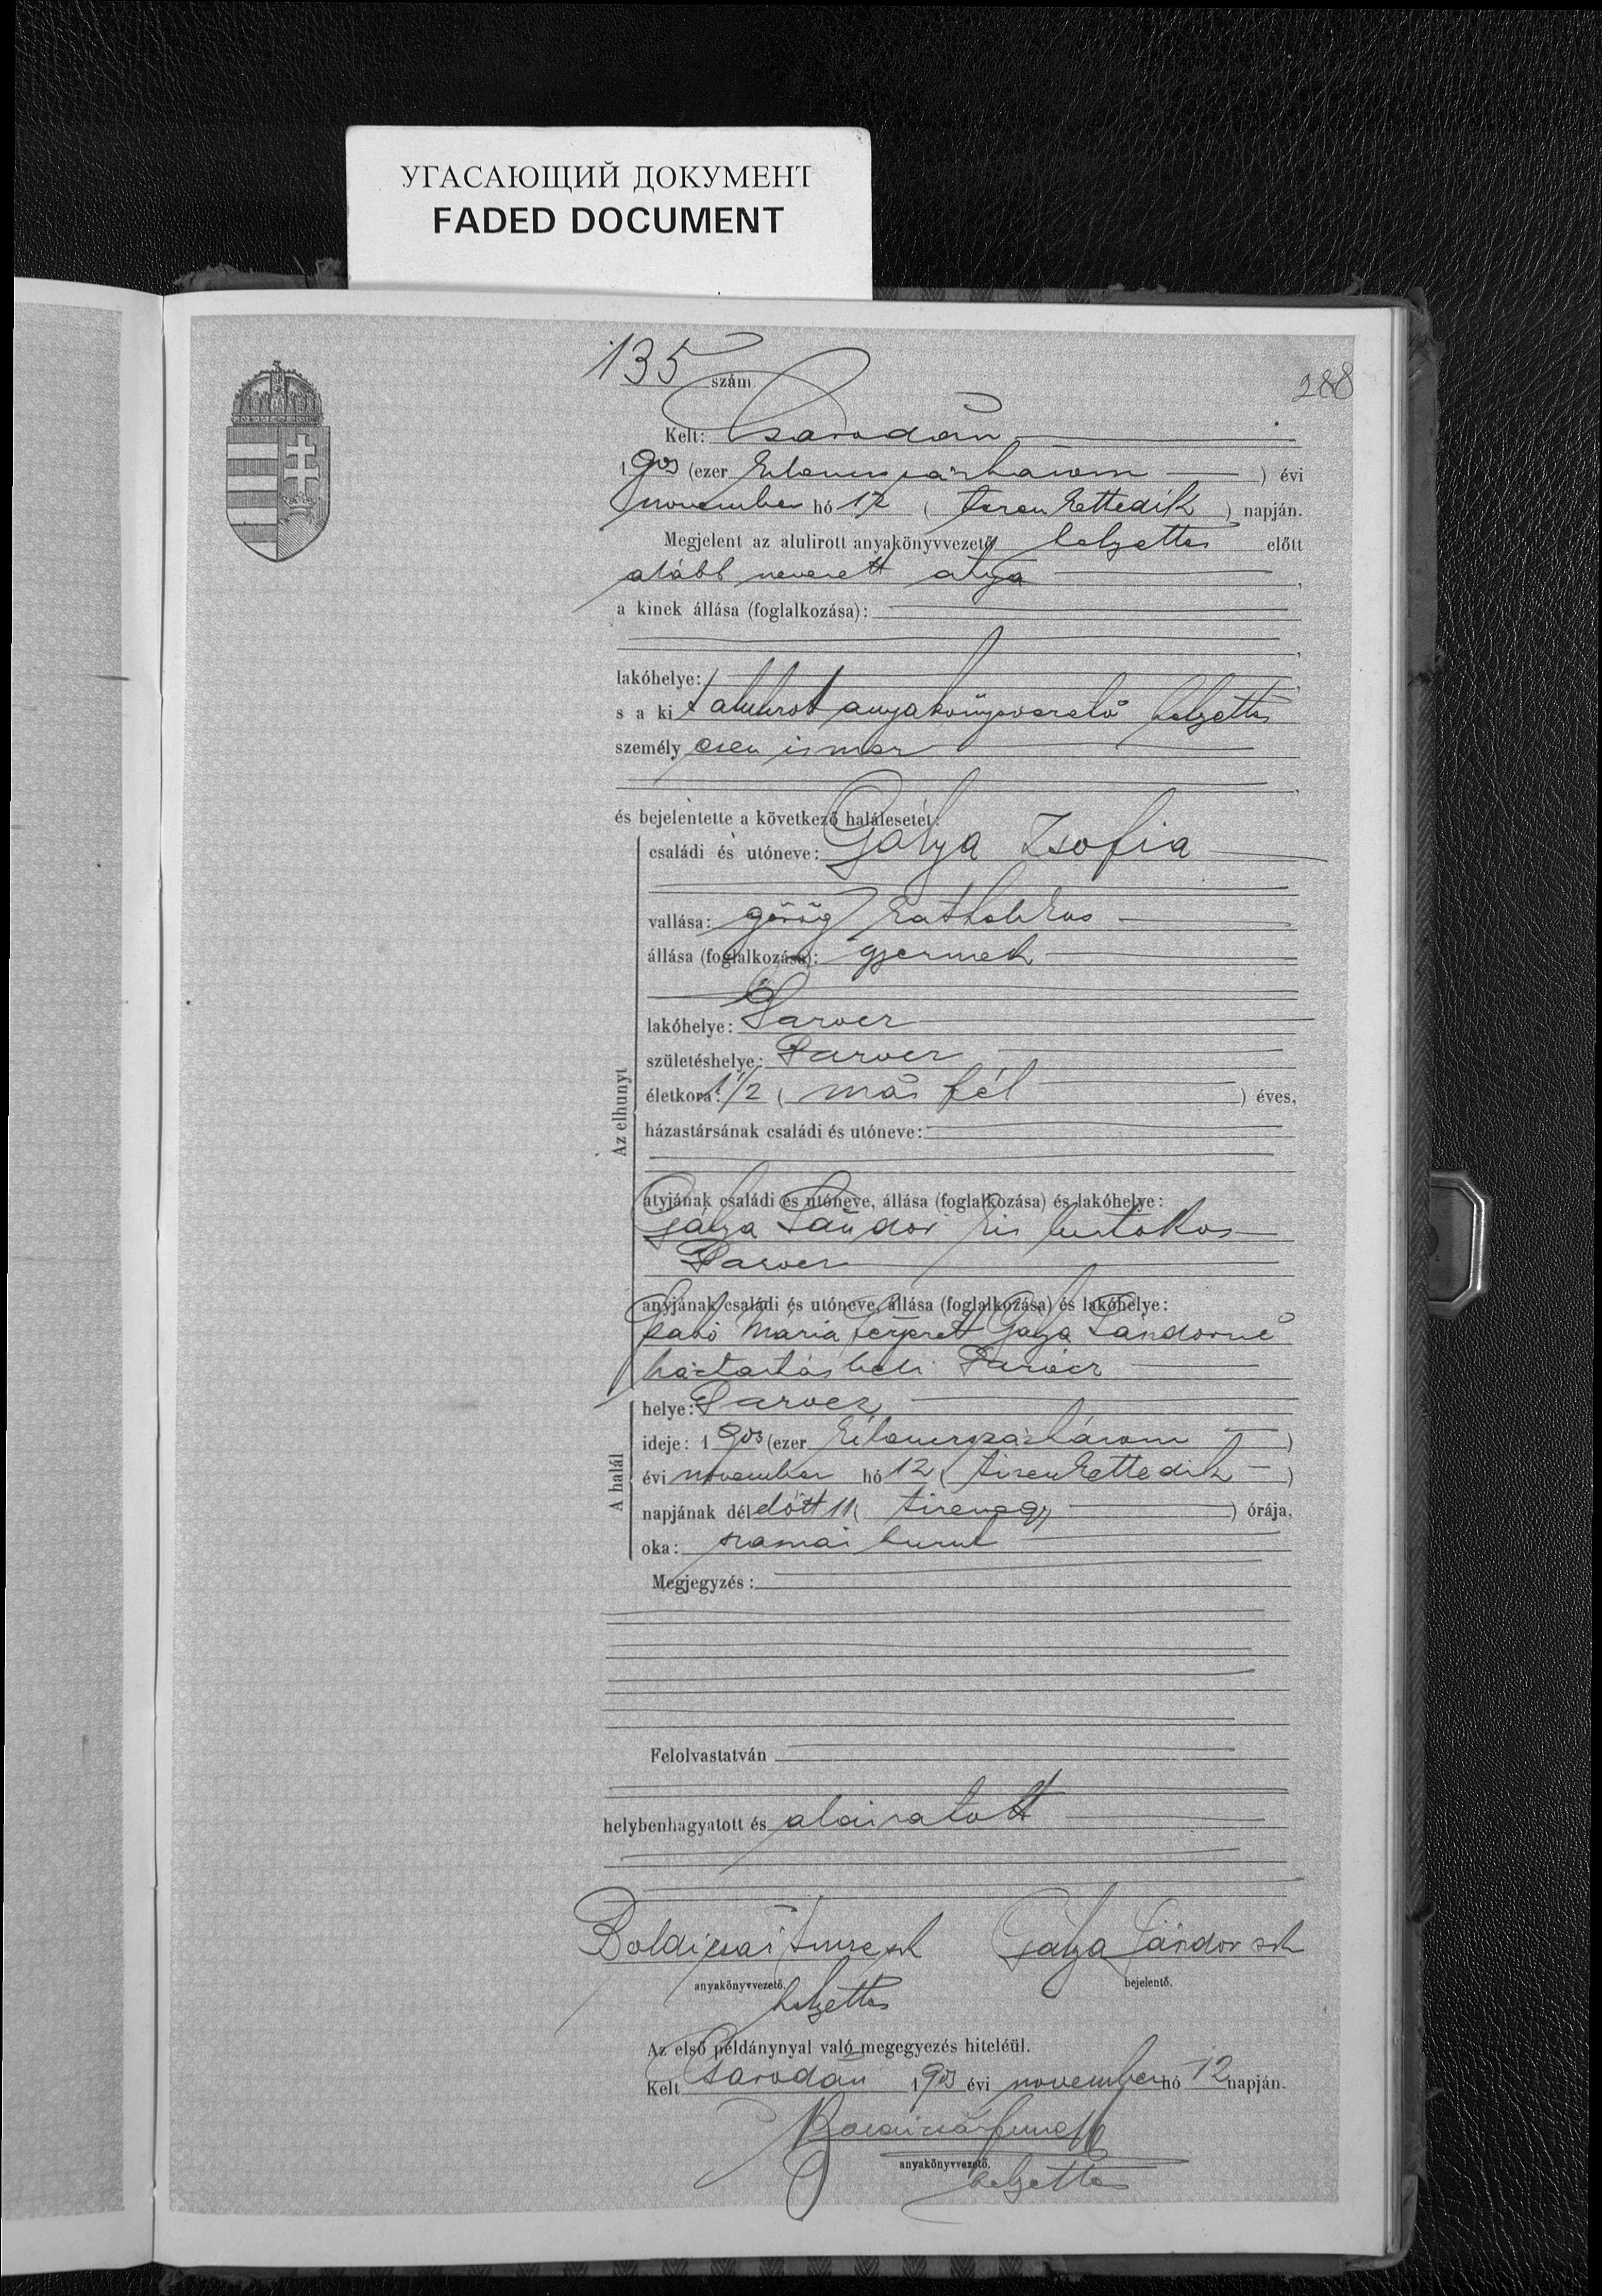 УГАСАЮЩИЙ ДОКУМЕНТ
FADED DOCUMENT
135 szám
288
Kelt: Csarodán
1903 (ezer kilencszázhárom) évi
november hó 12 (tizenkettedik) napján.
Megjelent az alulirott anyakönyvvezető helyettes előtt
alább nevezett atya,
a kinek állása (foglalkozása):
lakóhelye:
s a ki t alulirot anyakönyvvezető helyettes
személyesen ismer
és bejelentette a következő halálesetet:
családi és utóneve: Gálya Zsofia
vallása: görög katholikus
állása (foglalkozása): gyermek
lakóhelye:
születéshelye:
életkora: 1 1/2 (más fél) éves,
házastársának családi és utóneve:
Az elhunyt
atyjának családi és utóneve, állása (foglalkozása) és lakóhelye:
Gálya Sándor kis birtokos
anyjának családi és utóneve, állása (foglalkozása) és lakóhelye:
Szabó Mária férjezett Gálya Sándorné
háztartásbeli
helye:
ideje: 1903 (ezer kilencszázhárom)
évi november hó 12 (tizenkettedik)
A halál
napjának délelőtt 11 (tizenegy) órája.
oka: szamár hurut
Megjegyzés:
Felolvastatván
helybenhagyatott és aláiratott
Boldizsár Imre sk Gálya Sándor sk
anyakönyvvezető. bejelentő.
helyettes
Az első példánynyal való megegyezés hiteléül.
Kelt Csarodán 1903 évi november hó 12 napján.
Boldizsár Imre
anyakönyvvezető.
helyettes